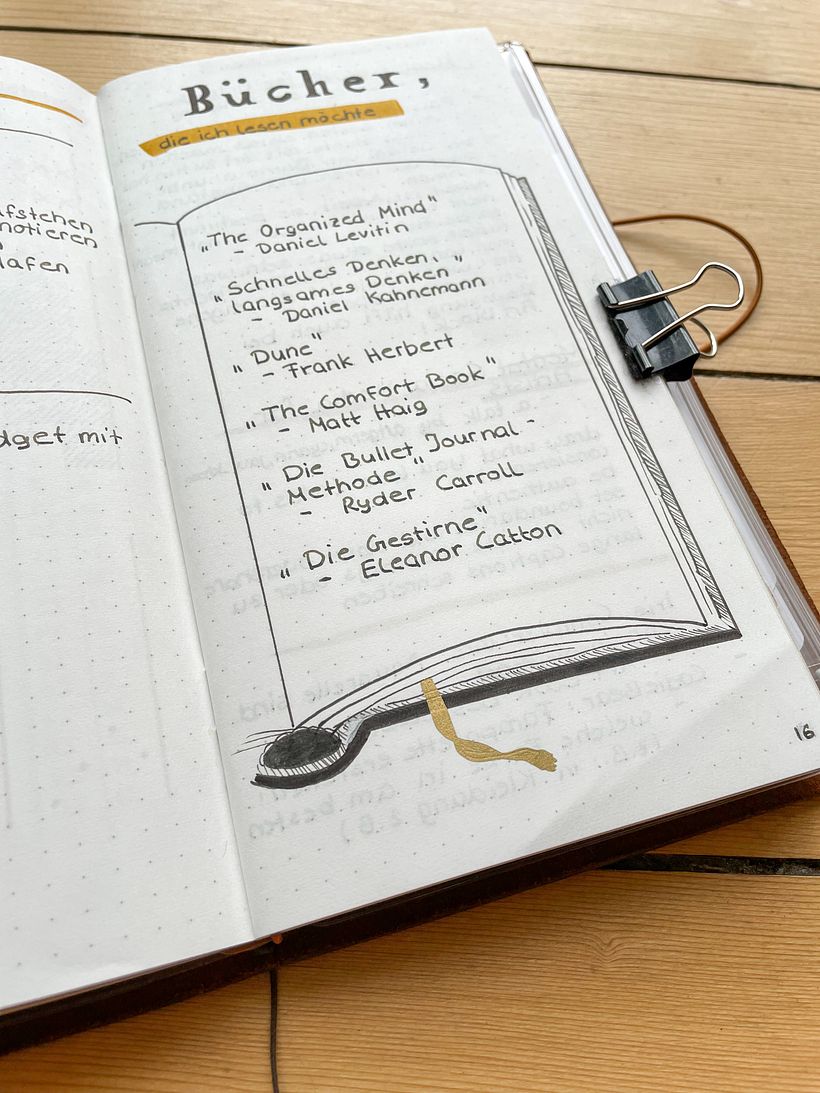 notieren
dget mit
Bücher,
die ich lesen möchte
„The Organized Mind"
- Daniel Levitin
„Schnelles Denken,
langsames Denken"
- Daniel Kahnemann
„Dune"
- Frank Herbert
„The Comfort Book"
- Matt Haig
„Die Bullet Journal-
Methode"
- Ryder Carroll
„Die Gestirne"
- Eleanor Catton
16